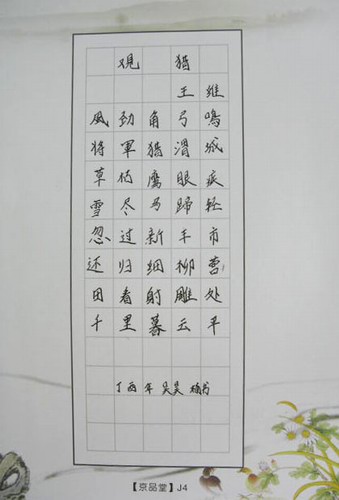 观猎
王维
風劲角弓鳴
将軍猎渭城
草枯鹰眼疾
雪尽马蹄轻
忽过新丰市
还归细柳营
回看射雕处
千里暮云平
丁酉年吴昊书
【京品堂】J4